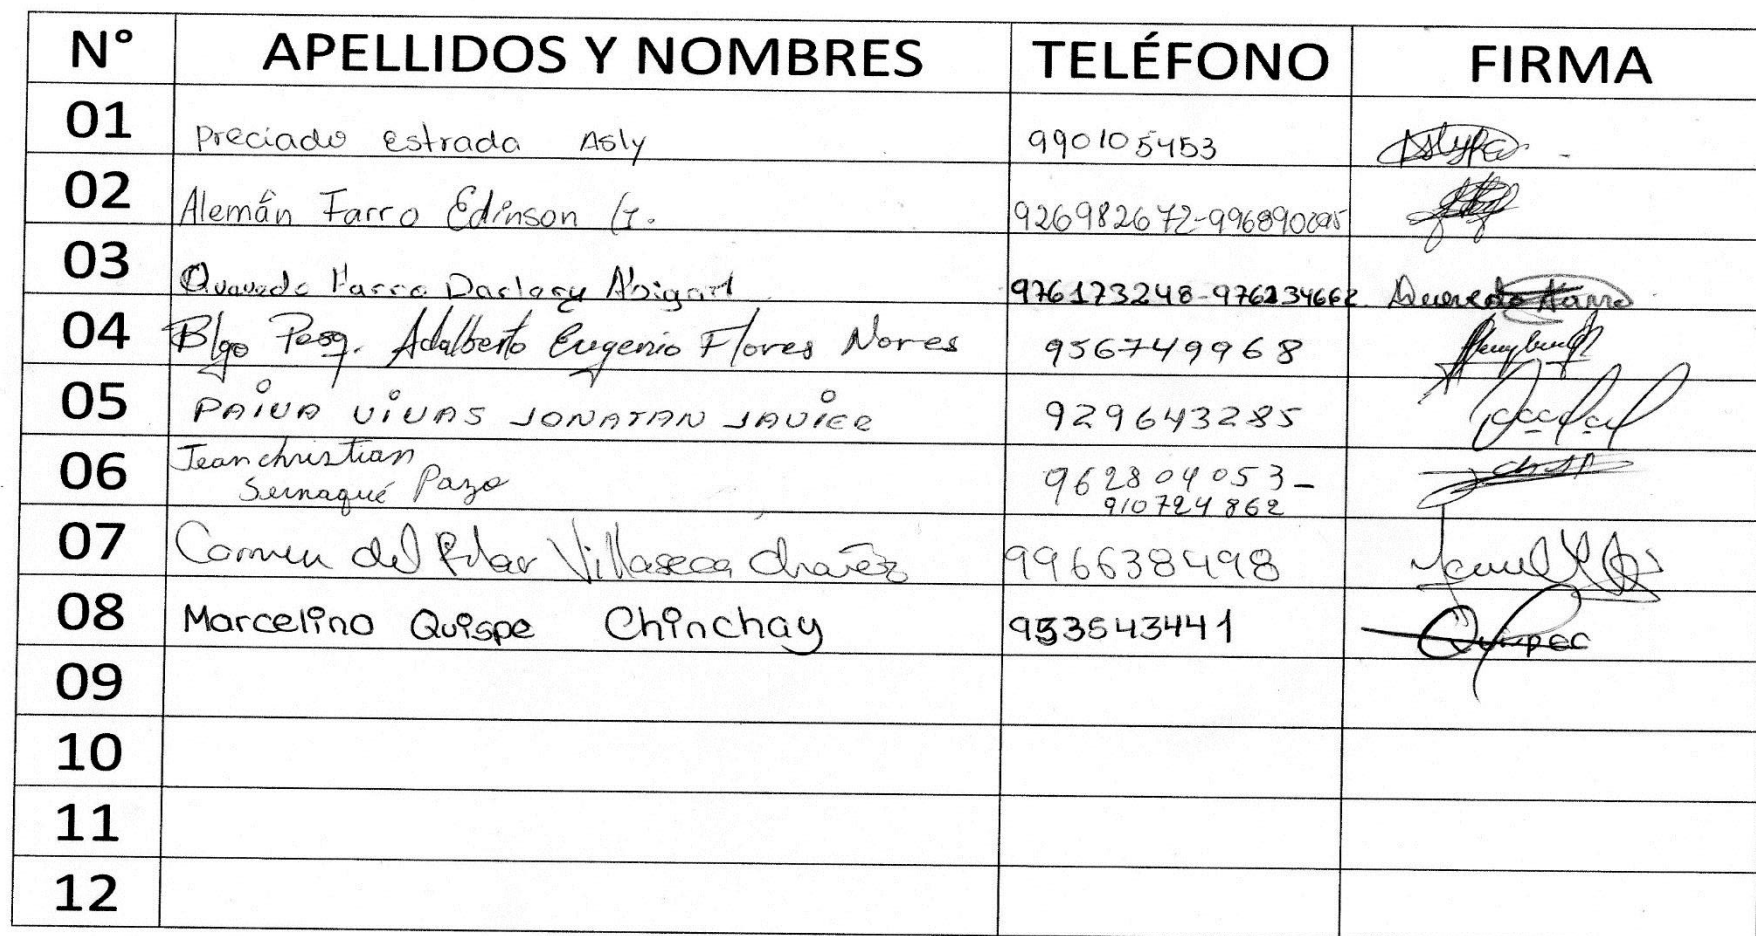 N° APELLIDOS Y NOMBRES TELÉFONO FIRMA
01 Preciado Estrada Asly 990105453
02 Alemán Farro Edinson G. 926982672-996890095
03 Quevedo Farro Darlery Abigail 976173248-976234662 Quevedo Farro
04 Blgo Pesq. Adalberto Eugenio Flores Nores 956749968
05 PAIVA VIVAS JONATAN JAVIER 929643285
06 Jeanchristian 962804053-
Sernaqué Pazo 910724862
07 Carmen del Pilar Villaseca Chávez 996638498
08 Marcelino Quispe Chinchay 953543441 Quispec
09
10
11
12